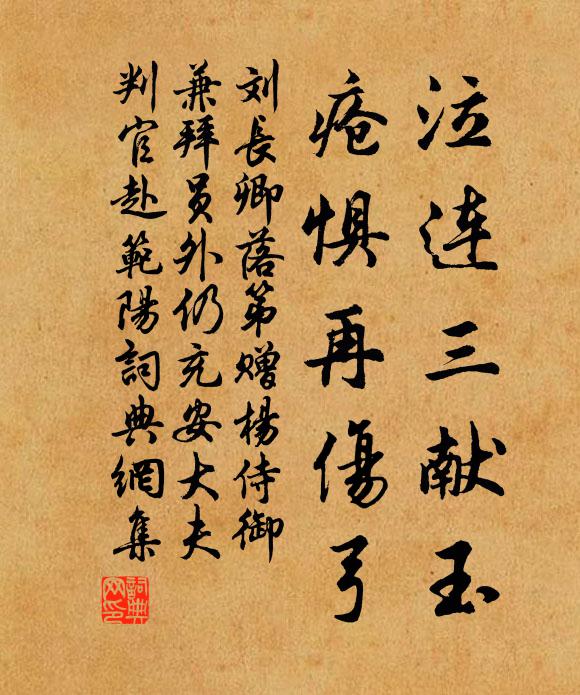 泣连三献玉
疮惧再傷弓
刘長卿落第赠楊侍御
兼拜员外仍充安大夫
判官赴範陽詞典網集
詞典网印